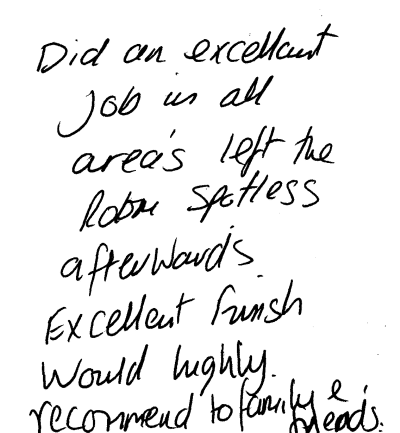 Did an excellant
Job in all
area's left the
Room Spotless
afterwards
Excellent Finish
Would highly.
recommend to family & friends.